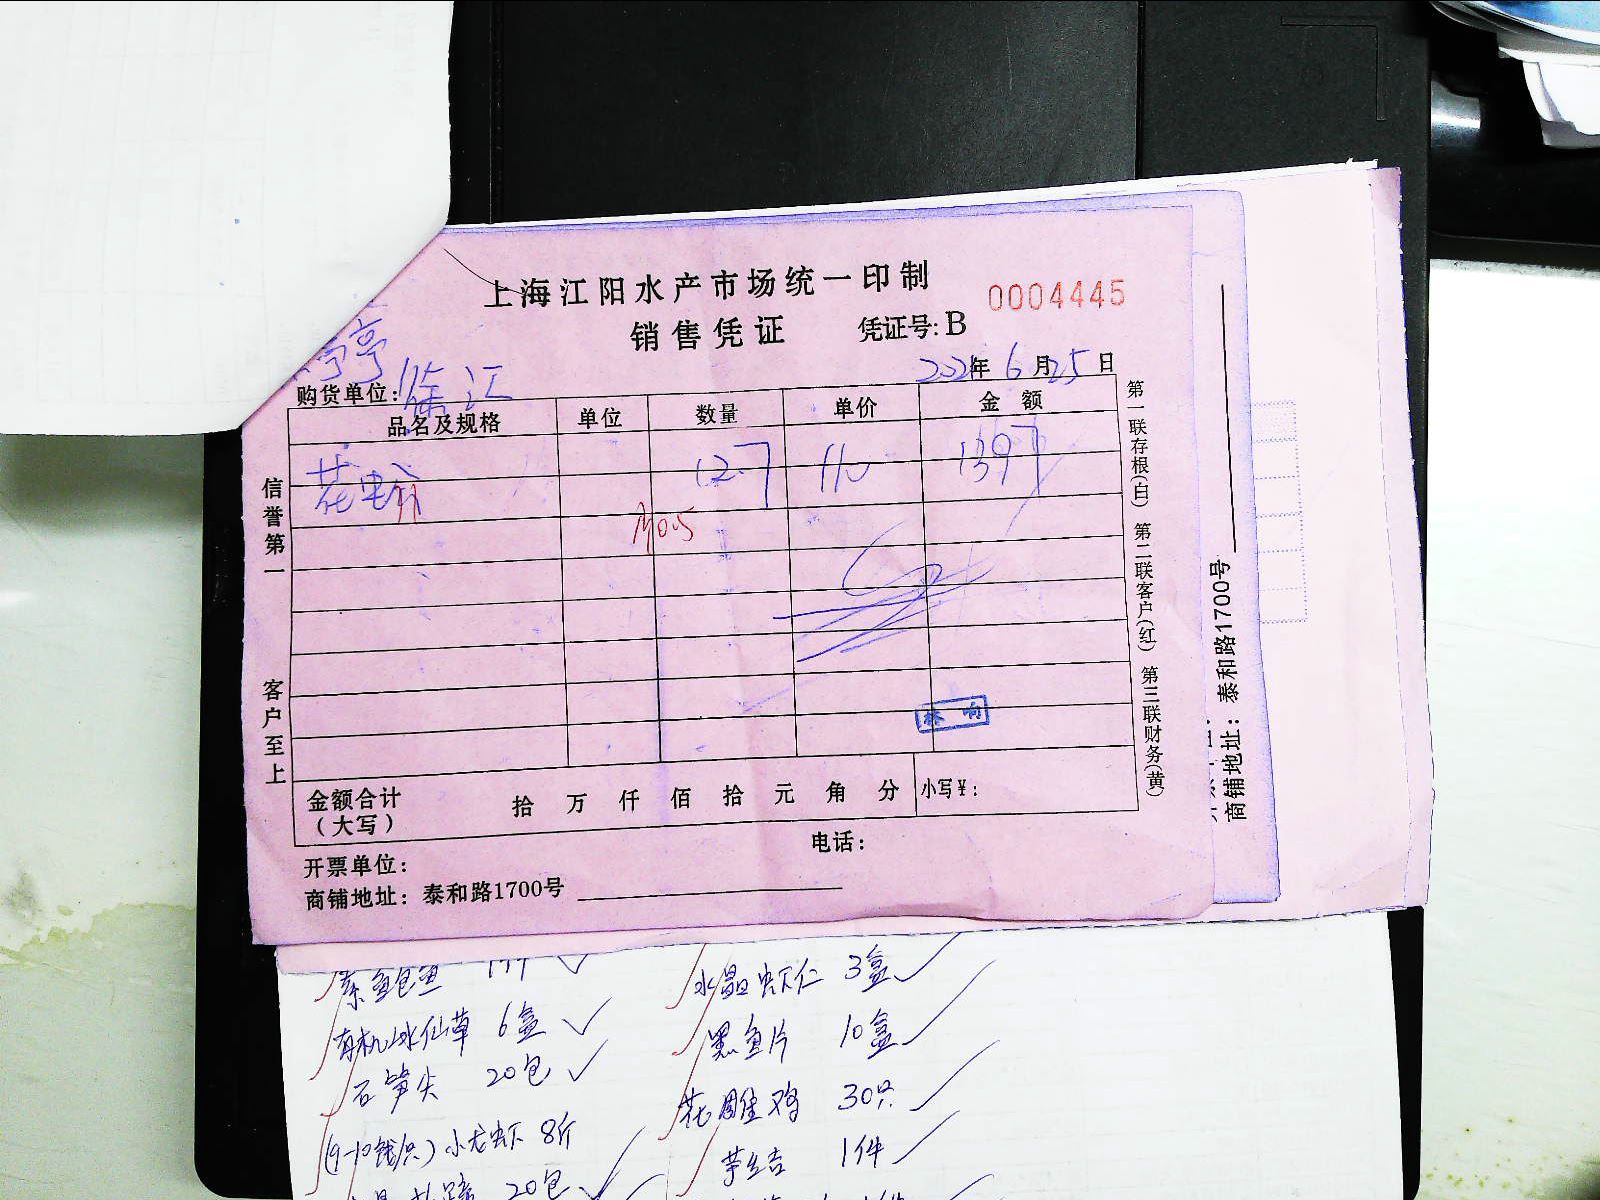 上海江阳水产市场统一印制
0004445
销售凭证 凭证号: B
2021年6月25日
亭
购货单位: 徐江
品名及规格 单位 数量 单价 金额
花虫合 12.7 110 1397
信誉第一
客户至上
第一联存根(白) 第二联客户(红) 第三联财务(黄)
金额合计 拾 万 仟 佰 拾 元 角 分 小写¥:
(大写)
电话:
开票单位:
商铺地址: 泰和路1700号
商铺地址: 泰和路1700号
素鲍鱼 1件
有机水仙草 6盒
石笋尖 20包
(9-10钱/只) 小龙虾 8斤
20包
水晶虾仁 3盒
黑鱼片 10盒
花雕鸡 30只
芋结 1件